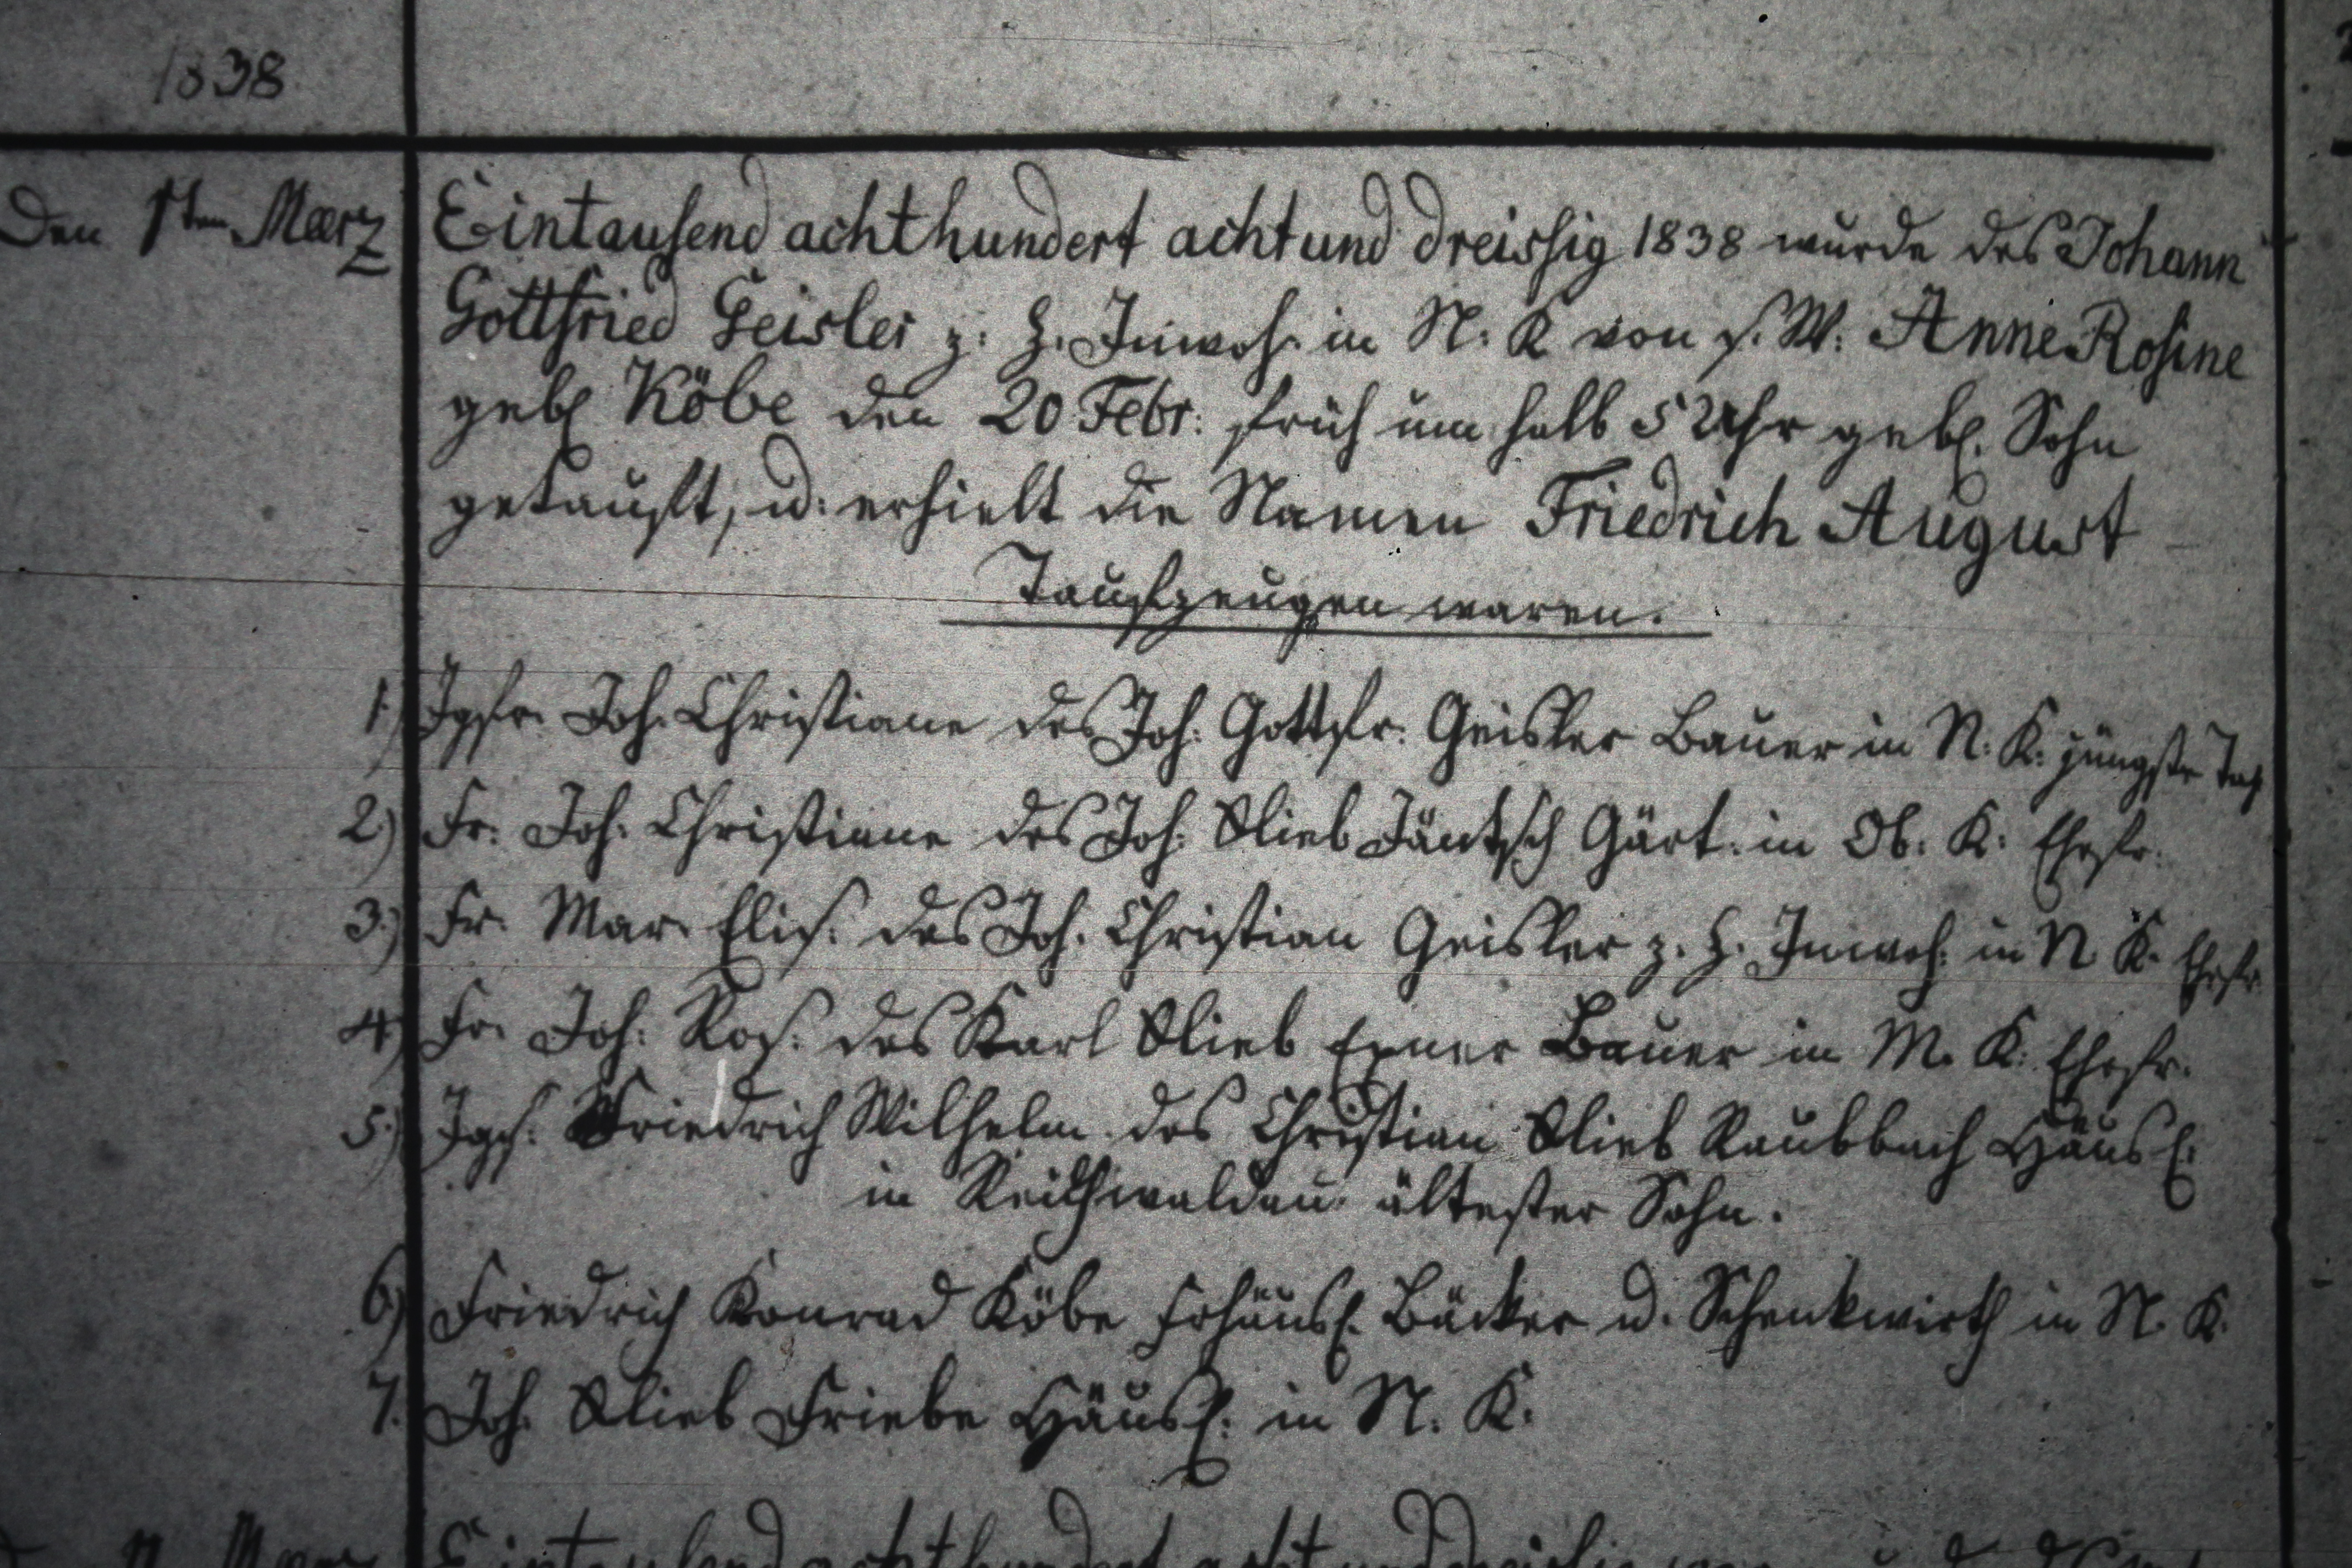 1838
Den 1ten Maerz
Eintausend achthundert achtund dreissig 1838 wurde des Johann
Gottfried Geisler z. Z. Inwoh. in N. K von s. W. Anne Rosine
geb. Köbe den 20 Febr: früh um halb 5 Uhr geb. Sohn
getauft, u: erhielt die Namen Friedrich August
Taufzeugen waren.
1.) Jgfr. Joh. Christiane des Joh. Gottfr. Geisler Bauer in N. K. jüngste Toch
2.) Fr. Joh. Christiane des Joh. Glieb Jäntsch Gärt. in Ob. K. Ehefr.
3.) Fr. Mar. Elis. des Joh. Christian Geisler z. Z. Inwoh. in N K. Ehefr
4.) Fr. Joh. Ros. des Karl Glieb Exner Bauer in M. K. Ehefr.
5.) Jgs. Friedrich Wilhelm des Christian Glieb Raubbach Häusl.
in Reichwaldau ältester Sohn.
6.) Friedrich Konrad Köbe Frhäusl. Bäcker u. Schenkwirth in N. K.
7. Joh. Glieb Friebe Häusl. in N. K.